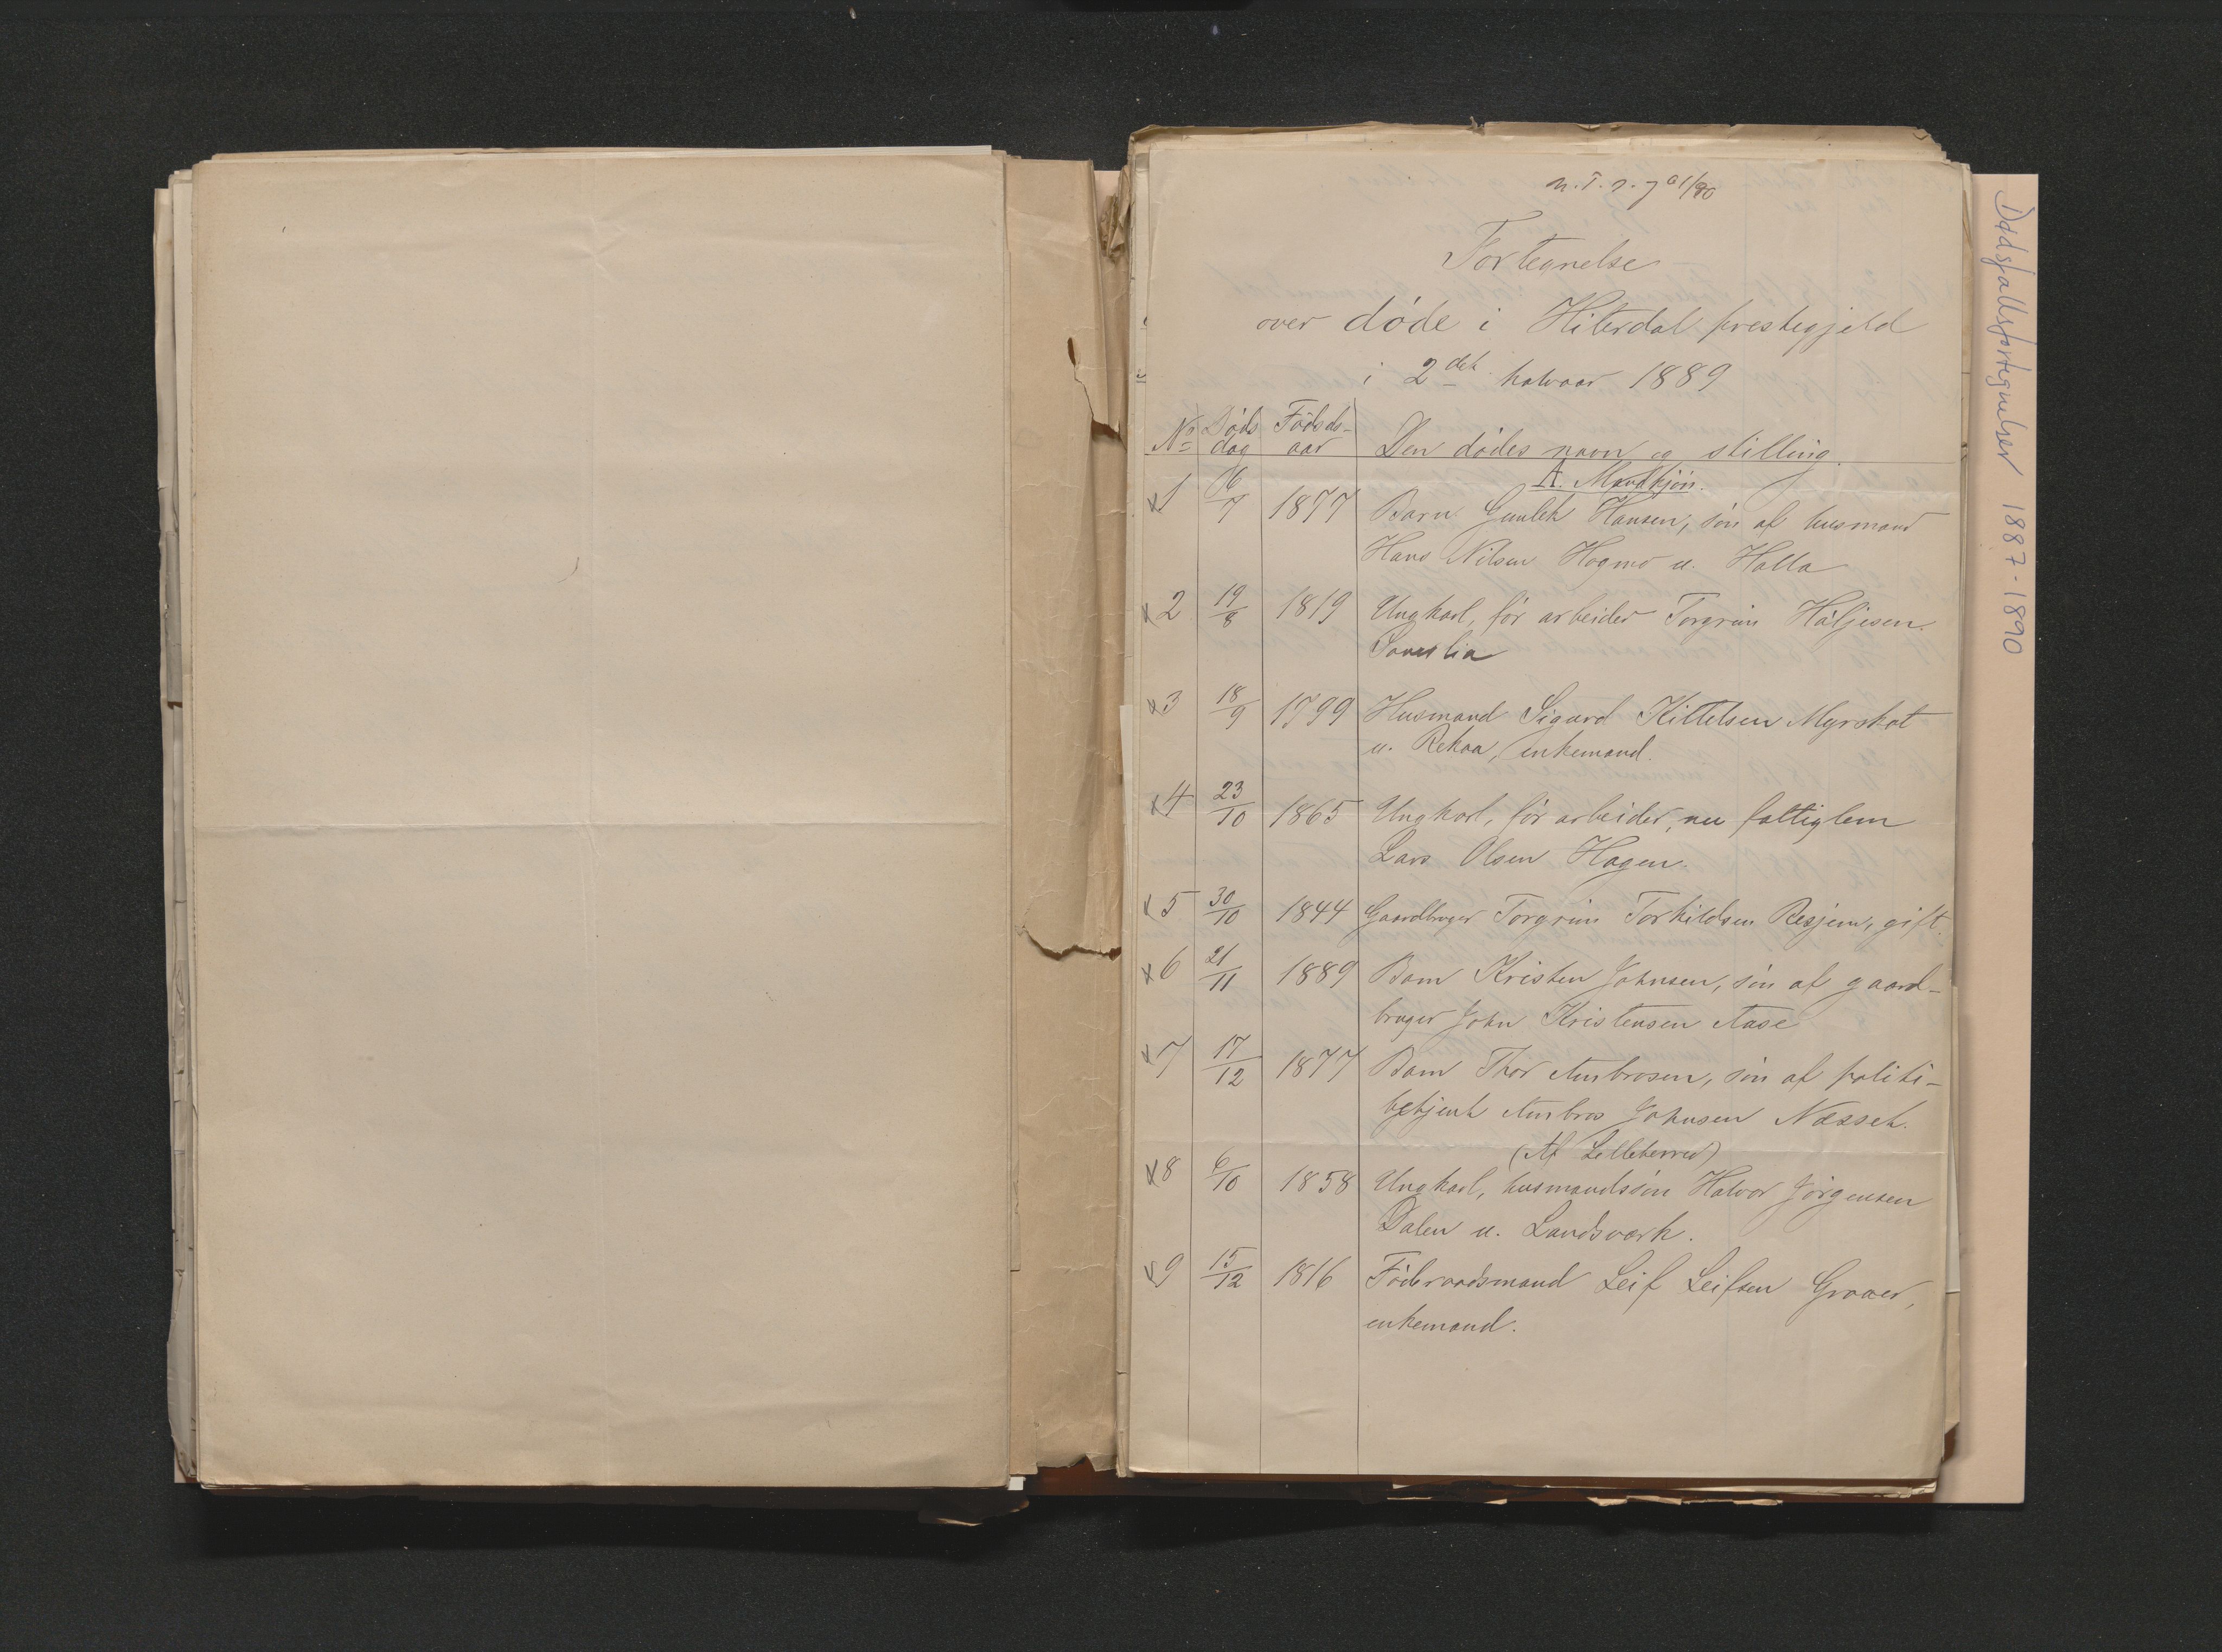 Fortegnelse
over döde i Hiterdal prestegjeld
i 2det halvaar 1889
No Döds dag Födsels-aar Den dödes navn og stilling.
A. Mandkjön.
x1 16/7 1877 Barn Gunlek Hansen, sön af husmand
Hans Nilsen Hogmo u. Halla
x2 19/8 1819 Ungkarl, för arbeider Torgrim Häljesen
x3 18/9 1799 Husmand Sigurd Kittelsen Myrskot
u. Rekaa, enkemand.
x4 23/10 1865 Ungkarl, för arbeider, nu fattiglem
Lars Olsen Hagen.
x5 30/10 1844 Gaardbruger Torgrim Torkildsen Resjem, gift.
x6 21/11 1889 Barn Kristen Johnsen, sön af gaard-
bruger John Kristensen Aase
x7 17/12 1877 Barn Thor Ambrosen, sön af politi-
betjent Ambros Johnsen Næsset.
(Af Lilleherred)
x8 6/10 1858 Ungkarl, husmandssön Halvor Jörgensen
Dalen u. Landsværk.
x9 15/12 1816 Föderaadsmand Leif Leifsen Graver,
enkemand.
Dødsfallsfortegnelser 1887-1890